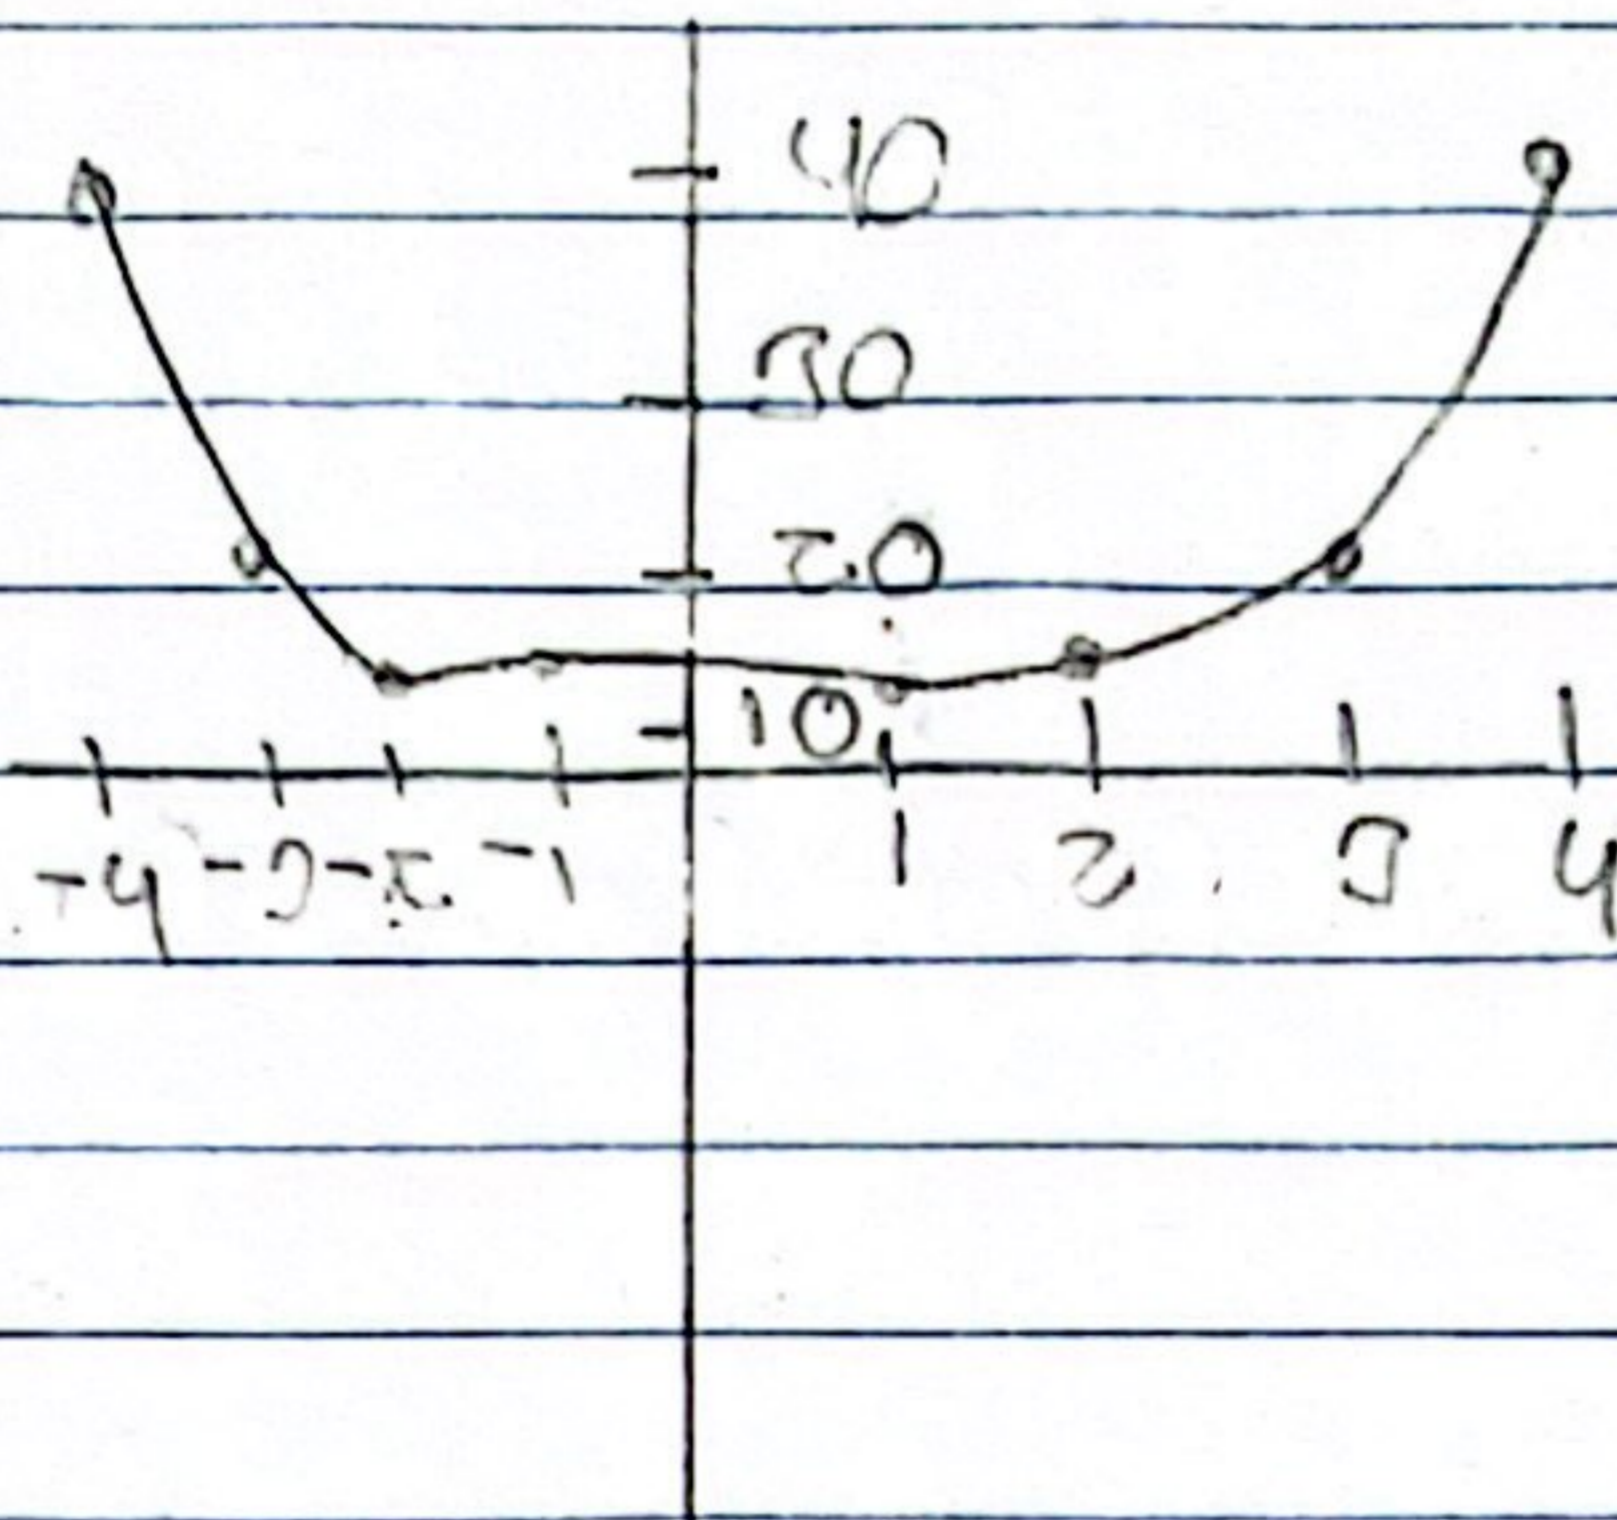 40
30
20
10
-4 -3 -2 -1 1 2 3 4